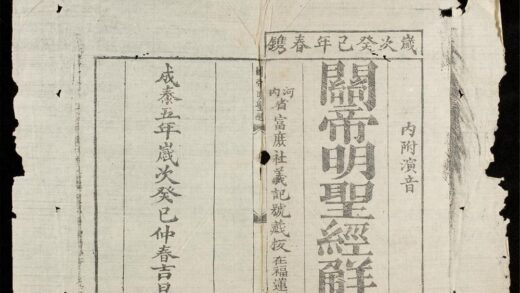 歲次癸巳年春鐫
內附演音
關帝明聖經觧
河內省富社義記號藏板在福蓮
成泰五年嵗次癸巳仲春吉日